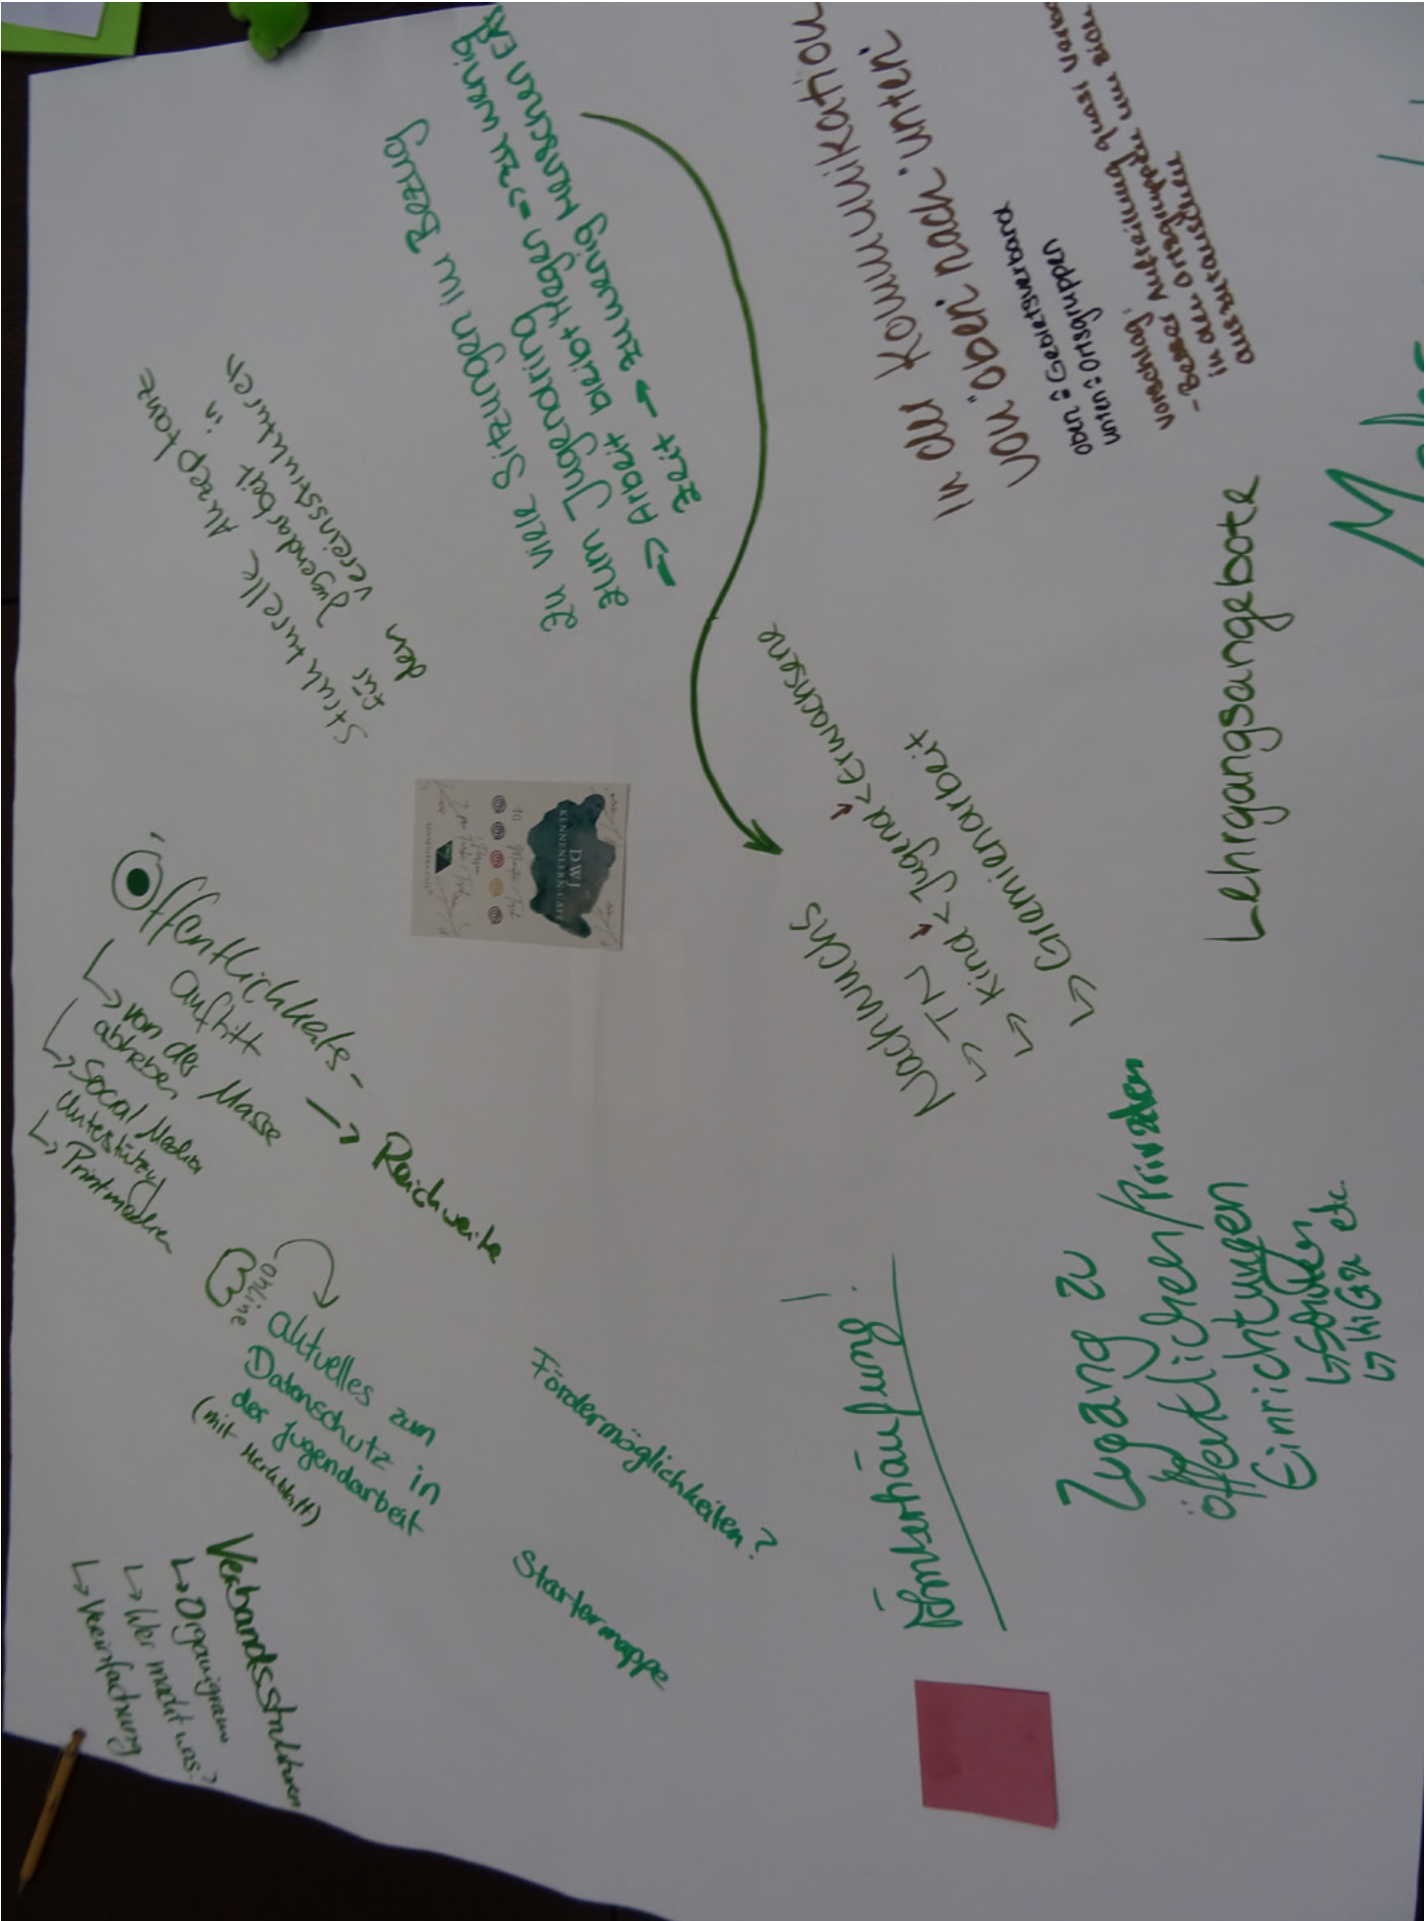 zu viele Sitzungen im Bezug
zum Jugendring => zu wenig
-> Arbeit bleibt liegen -> zu wenig Menschen
Zeit
Strukturelle Akzeptanz
für Jugendarbeit in
den Vereinsstrukturen
In der Kommunikation
von "oben" nach "unten".
oben: Gebietsverband
unten: Ortsgruppen
Vorschlag:
in den Ortsgruppen um sich
auszutauschen
Lehrgangsangebote
Nachwuchs
↳ TN
↳ Kind < Jugend < Erwachsene
↳ Gremienarbeit
DWJ
KENNENLERN-CAFÉ
10
Öffentlichkeits-
auftritt
↳ von der Masse
abheben
↳ Social Media
Unterstützung
↳ Printmedien
-> Reichweite
online
aktuelles zum
Datenschutz in
der Jugendarbeit
(mit Merkblatt)
Fördermöglichkeiten?
Startermappe
Verbandsstrukturen
↳ Organigramm
↳ Wer macht was?
↳ Vereinfachung
Ämterhäufung!
Zugang zu
öffentlichen/privaten
Einrichtungen
↳ Schulen
↳ KiGa etc.